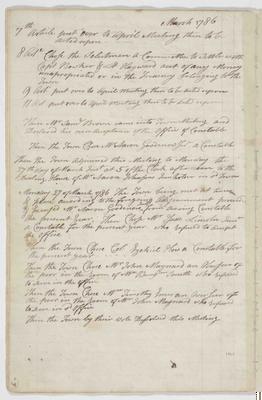 March 1786
7th Article put over to April Meeting then to be
acted upon
8 Art. Chose the Selectmen a Committee to settle with
Capt & Col Hayward any of any Money
unappropriated or in the Treasury belonging to the
Town
9 Art put over to April Meeting then to be acted upon
11 Art put over to April Meeting then to be acted upon
Then Mr Saml Brown came into Town Meeting and
declared his non acceptance of the Office of Constable
Then the Town Chose Mr Aaron Goodenow for a Constable
Then the Town adjourned this Meeting to Monday the
27th day of March Inst at 3 of the Clock after noon to the
House of Mr Aaron Johnson in Town
Monday 27 of March 1786 The Town being met at time
& place according to the foregoing adjournment
Mr Aaron Goodenow from serving Constable
the present Year. Then Chose Mr Lincoln
a Constable for the present year who refused to accept
the office
Then the Town Chose Col Ezekiel How a Constable for
the present year
Then the Town Chose Mr John Maynard an Overseer of
the poor in the room of Mr Smith who refused
to serve in the office
Then the Town Chose Mr Timothy Jones an Overseer of
the poor in the room of Mr John Maynard who refused
to serve in sd office
Then the Town by their Vote dissolved this Meeting